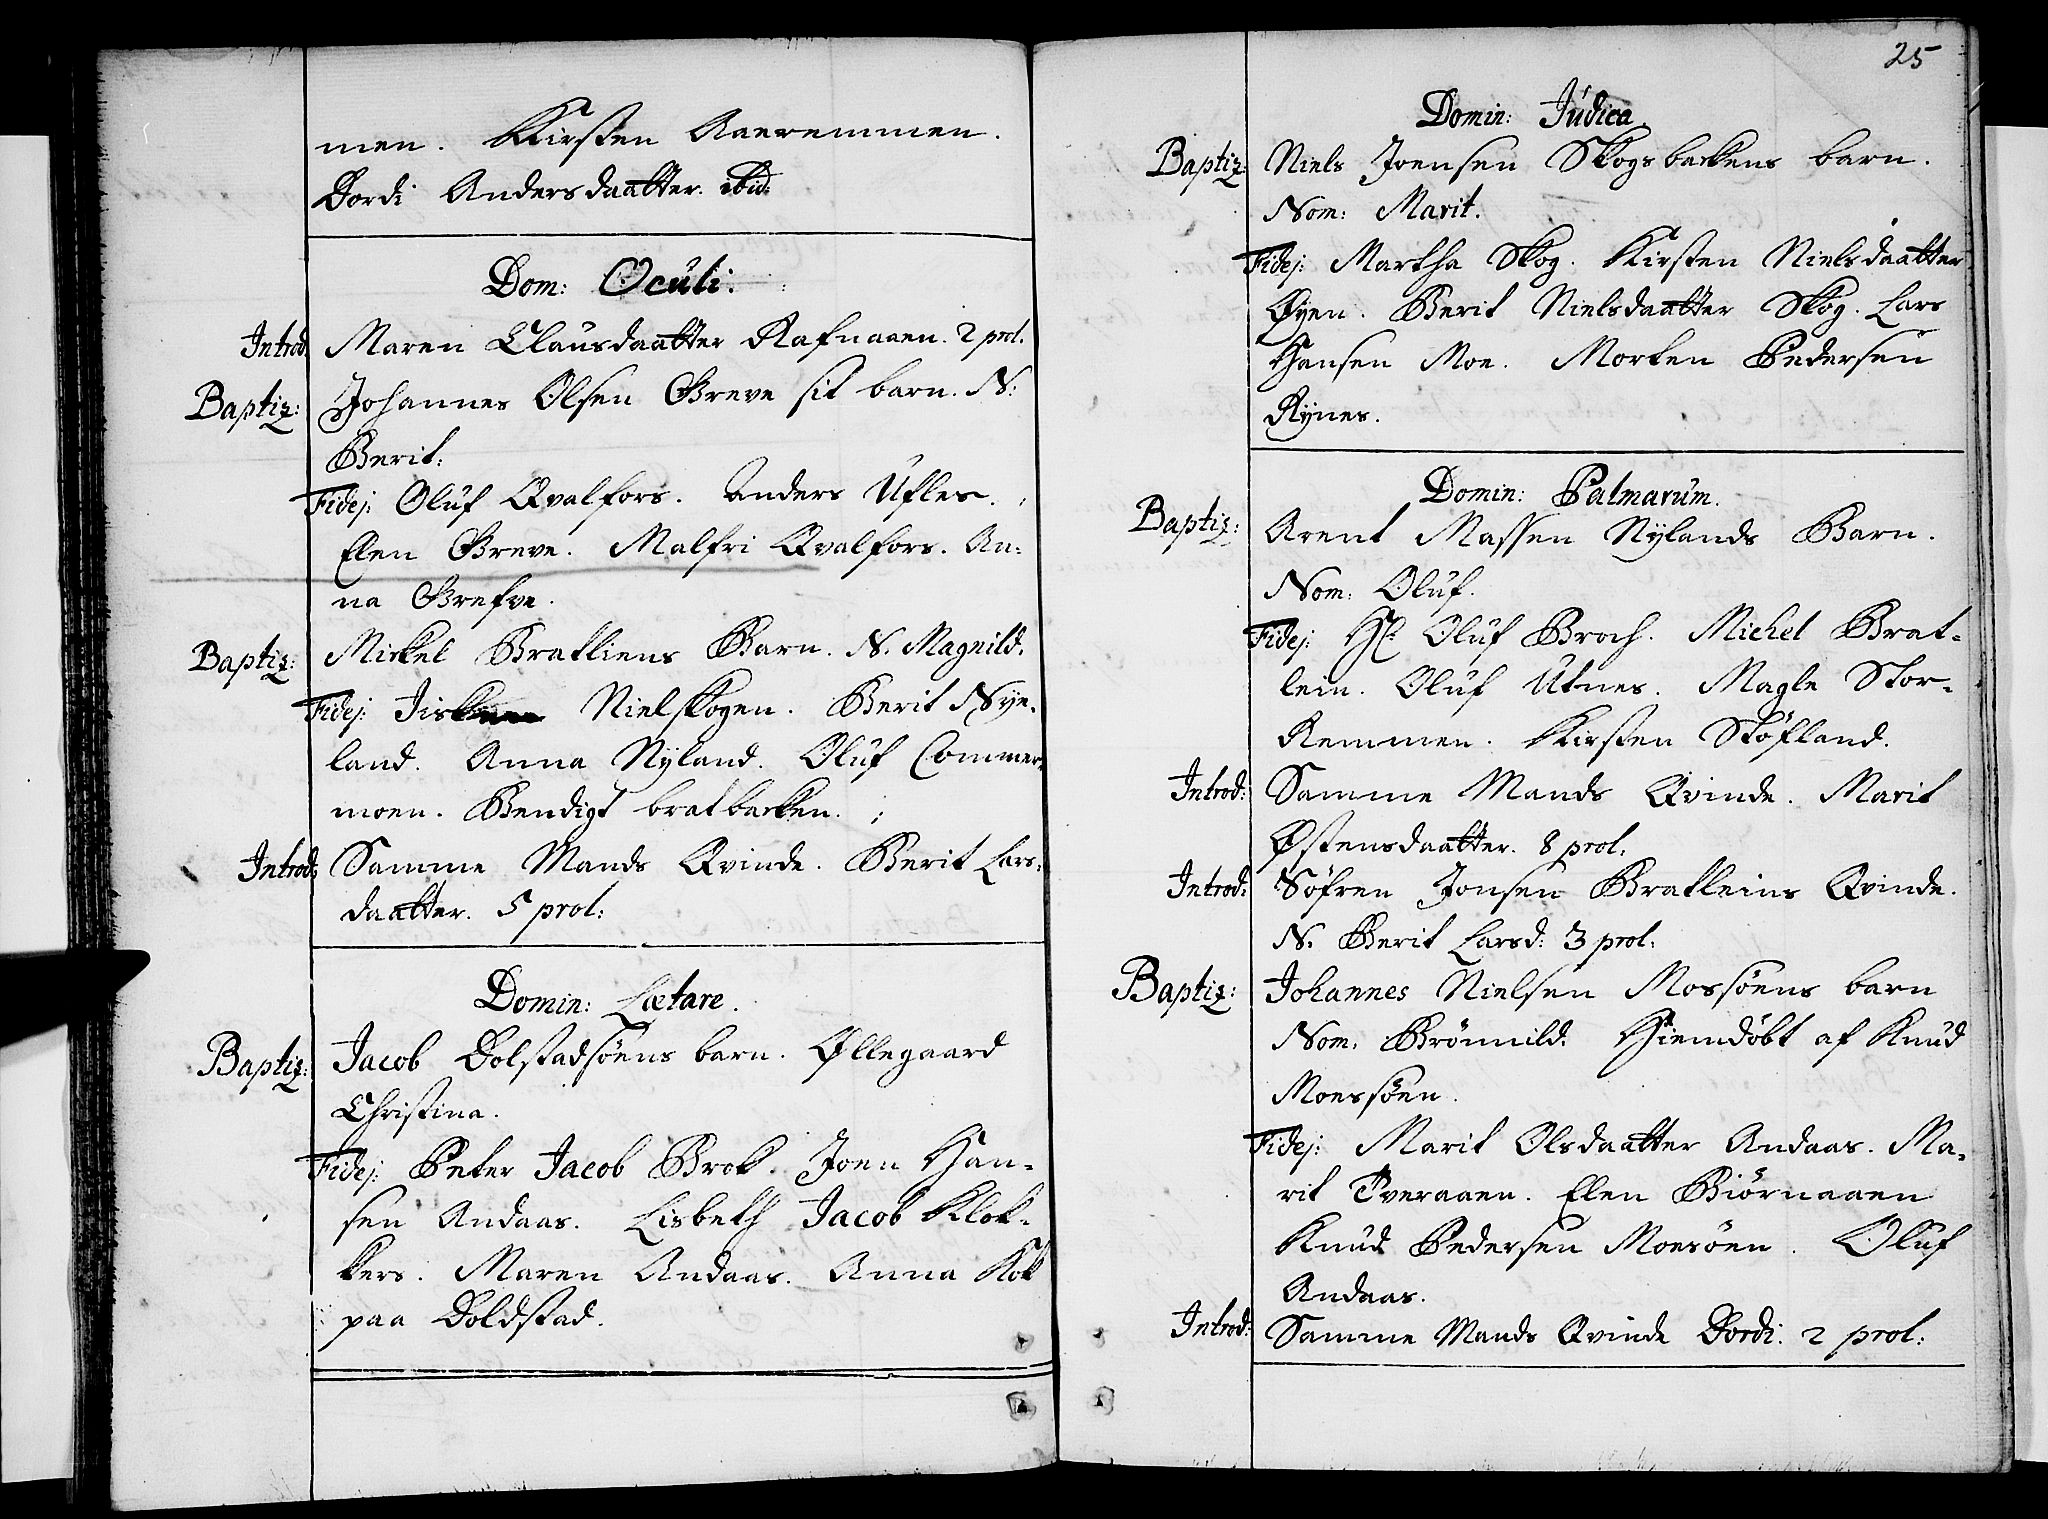 men. Kirsten Aaeremmen.
Dordi Andersdaatter. ibid:
Dom: Oculi.
Introd. Maren Clausdaatter Rafnaaen. 2 prol.
Baptiz: Johannes Olsen Greve sit barn. N:
Berit:
Fidej: Oluf Qvalfors. Anders Ufles.
Elen Greve. Malfri Qvalfors. An:
na Grefve.
Baptiz: Mickel Bratliens Barn. N. Magnild.
Fidej: Nielskogen. Berit Nye-
land. Anna Nyland. Oluf Commer-
moen. Bendigt bratbacken.
Introd: Samme Mands Qvinde. Berit Lars-
daatter. 5 prol:
Domin: Lætare.
Baptiz: Jacob Dolstadsøens barn. Øllegaard
Christina.
Fidej: Peter Jacob Brok. Joen Han-
sen Andaas. Lisbeth Jacob Klok-
kers. Maren Andaas. Anna Kok
paa Doldstad.
25
Domin: Judica.
Baptiz: Niels Joensen Skogsbackens barn.
Nom: Marit.
Fidej: Martha Skog. Kirsten Nielsdaatter
Øyen. Berit Nielsdaatter Skog. Lars
Hansen Moe. Morten Pedersen
Rynes.
Domin: Palmarum.
Baptiz: Arent Massen Nylands Barn.
Nom: Oluf.
Fidej: Hr Oluf Broch. Michel Brat-
lein. Oluf Utnes. Magle Stor-
Remmen. Kirsten Støfland.
Introd: Samme Mands Qvinde. Marit
Østensdaatter. 8 prol:
Introd: Søfren Jonsen Bratleins Qvinde.
N. Berit Larsd: 3 prol:
Baptiz: Johannes Nielsen Mossøens barn
Nom. Brønnild. Hiemdøbt af Knud
Moessøen.
Fidej: Marit Olsdaatter Andaas. Ma-
rit Tveraaen. Elen Biørnaaen
Knud Pedersen Moesøen. Oluf
Andaas.
Introd: Samme Mands Qvinde Dordi. 2 prol: